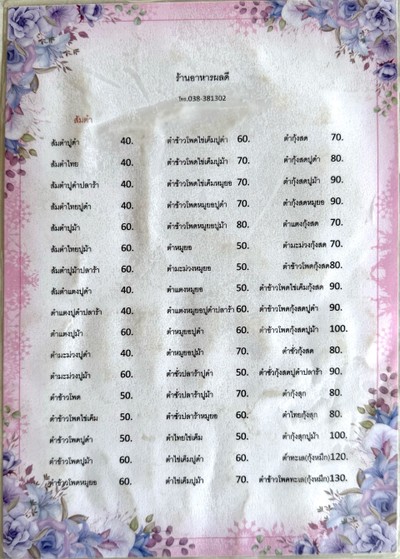 ร้านอาหารผลดี
โทร.038-381302
ส้มตำ
ส้มตำปูดำ 40.
ส้มตำไทย 40.
ส้มตำปูดำปลาร้า 40.
ส้มตำไทยปูดำ 40.
ส้มตำปูม้า 60.
ส้มตำไทยปูม้า 60.
ส้มตำปูม้าปลาร้า 60.
ส้มตำแตงปูดำ 40.
ตำแตงปูดำปลาร้า 40.
ตำแตงปูม้า 60.
ตำมะม่วงปูดำ 40.
ตำมะม่วงปูม้า 60.
ตำข้าวโพด 50.
ตำข้าวโพดไข่เค็ม 60.
ตำข้าวโพดปูดำ 50.
ตำข้าวโพดปูม้า 60.
ตำข้าวโพดหมูยอ 60.
ตำข้าวโพดไข่เค็มปูดำ 60.
ตำข้าวโพดไข่เค็มปูม้า 70.
ตำข้าวโพดไข่เค็มหมูยอ 70.
ตำข้าวโพดหมูยอปูดำ 70.
ตำข้าวโพดหมูยอปูม้า 80.
ตำหมูยอ 50.
ตำมะม่วงหมูยอ 50.
ตำแตงหมูยอ 50.
ตำแตงหมูยอปูดำปลาร้า 60.
ตำหมูยอปูดำ 60.
ตำหมูยอปูม้า 70.
ตำซั่วปลาร้าปูดำ 50.
ตำซั่วปลาร้าปูม้า 70.
ตำซั่วปลาร้าหมูยอ 60.
ตำไทยไข่เค็ม 50.
ตำไข่เค็มปูดำ 60.
ตำไข่เค็มปูม้า 70.
ตำกุ้งสด 70.
ตำกุ้งสดปูดำ 80.
ตำกุ้งสดปูม้า 90.
ตำกุ้งสดหมูยอ 90.
ตำแตงกุ้งสด 70.
ตำมะม่วงกุ้งสด 70.
ตำข้าวโพดกุ้งสด 80.
ตำข้าวโพดไข่เค็มกุ้งสด 90.
ตำข้าวโพดกุ้งสดปูดำ 90.
ตำข้าวโพดกุ้งสดปูม้า 100.
ตำซั่วกุ้งสด 80.
ตำซั่วกุ้งสดปูดำปลาร้า 90.
ตำกุ้งสุก 80.
ตำไทยกุ้งสุก 80.
ตำกุ้งสุกปูม้า 100.
ตำทะเล(กุ้งหมึก) 120.
ตำข้าวโพดทะเล(กุ้งหมึก) 130.